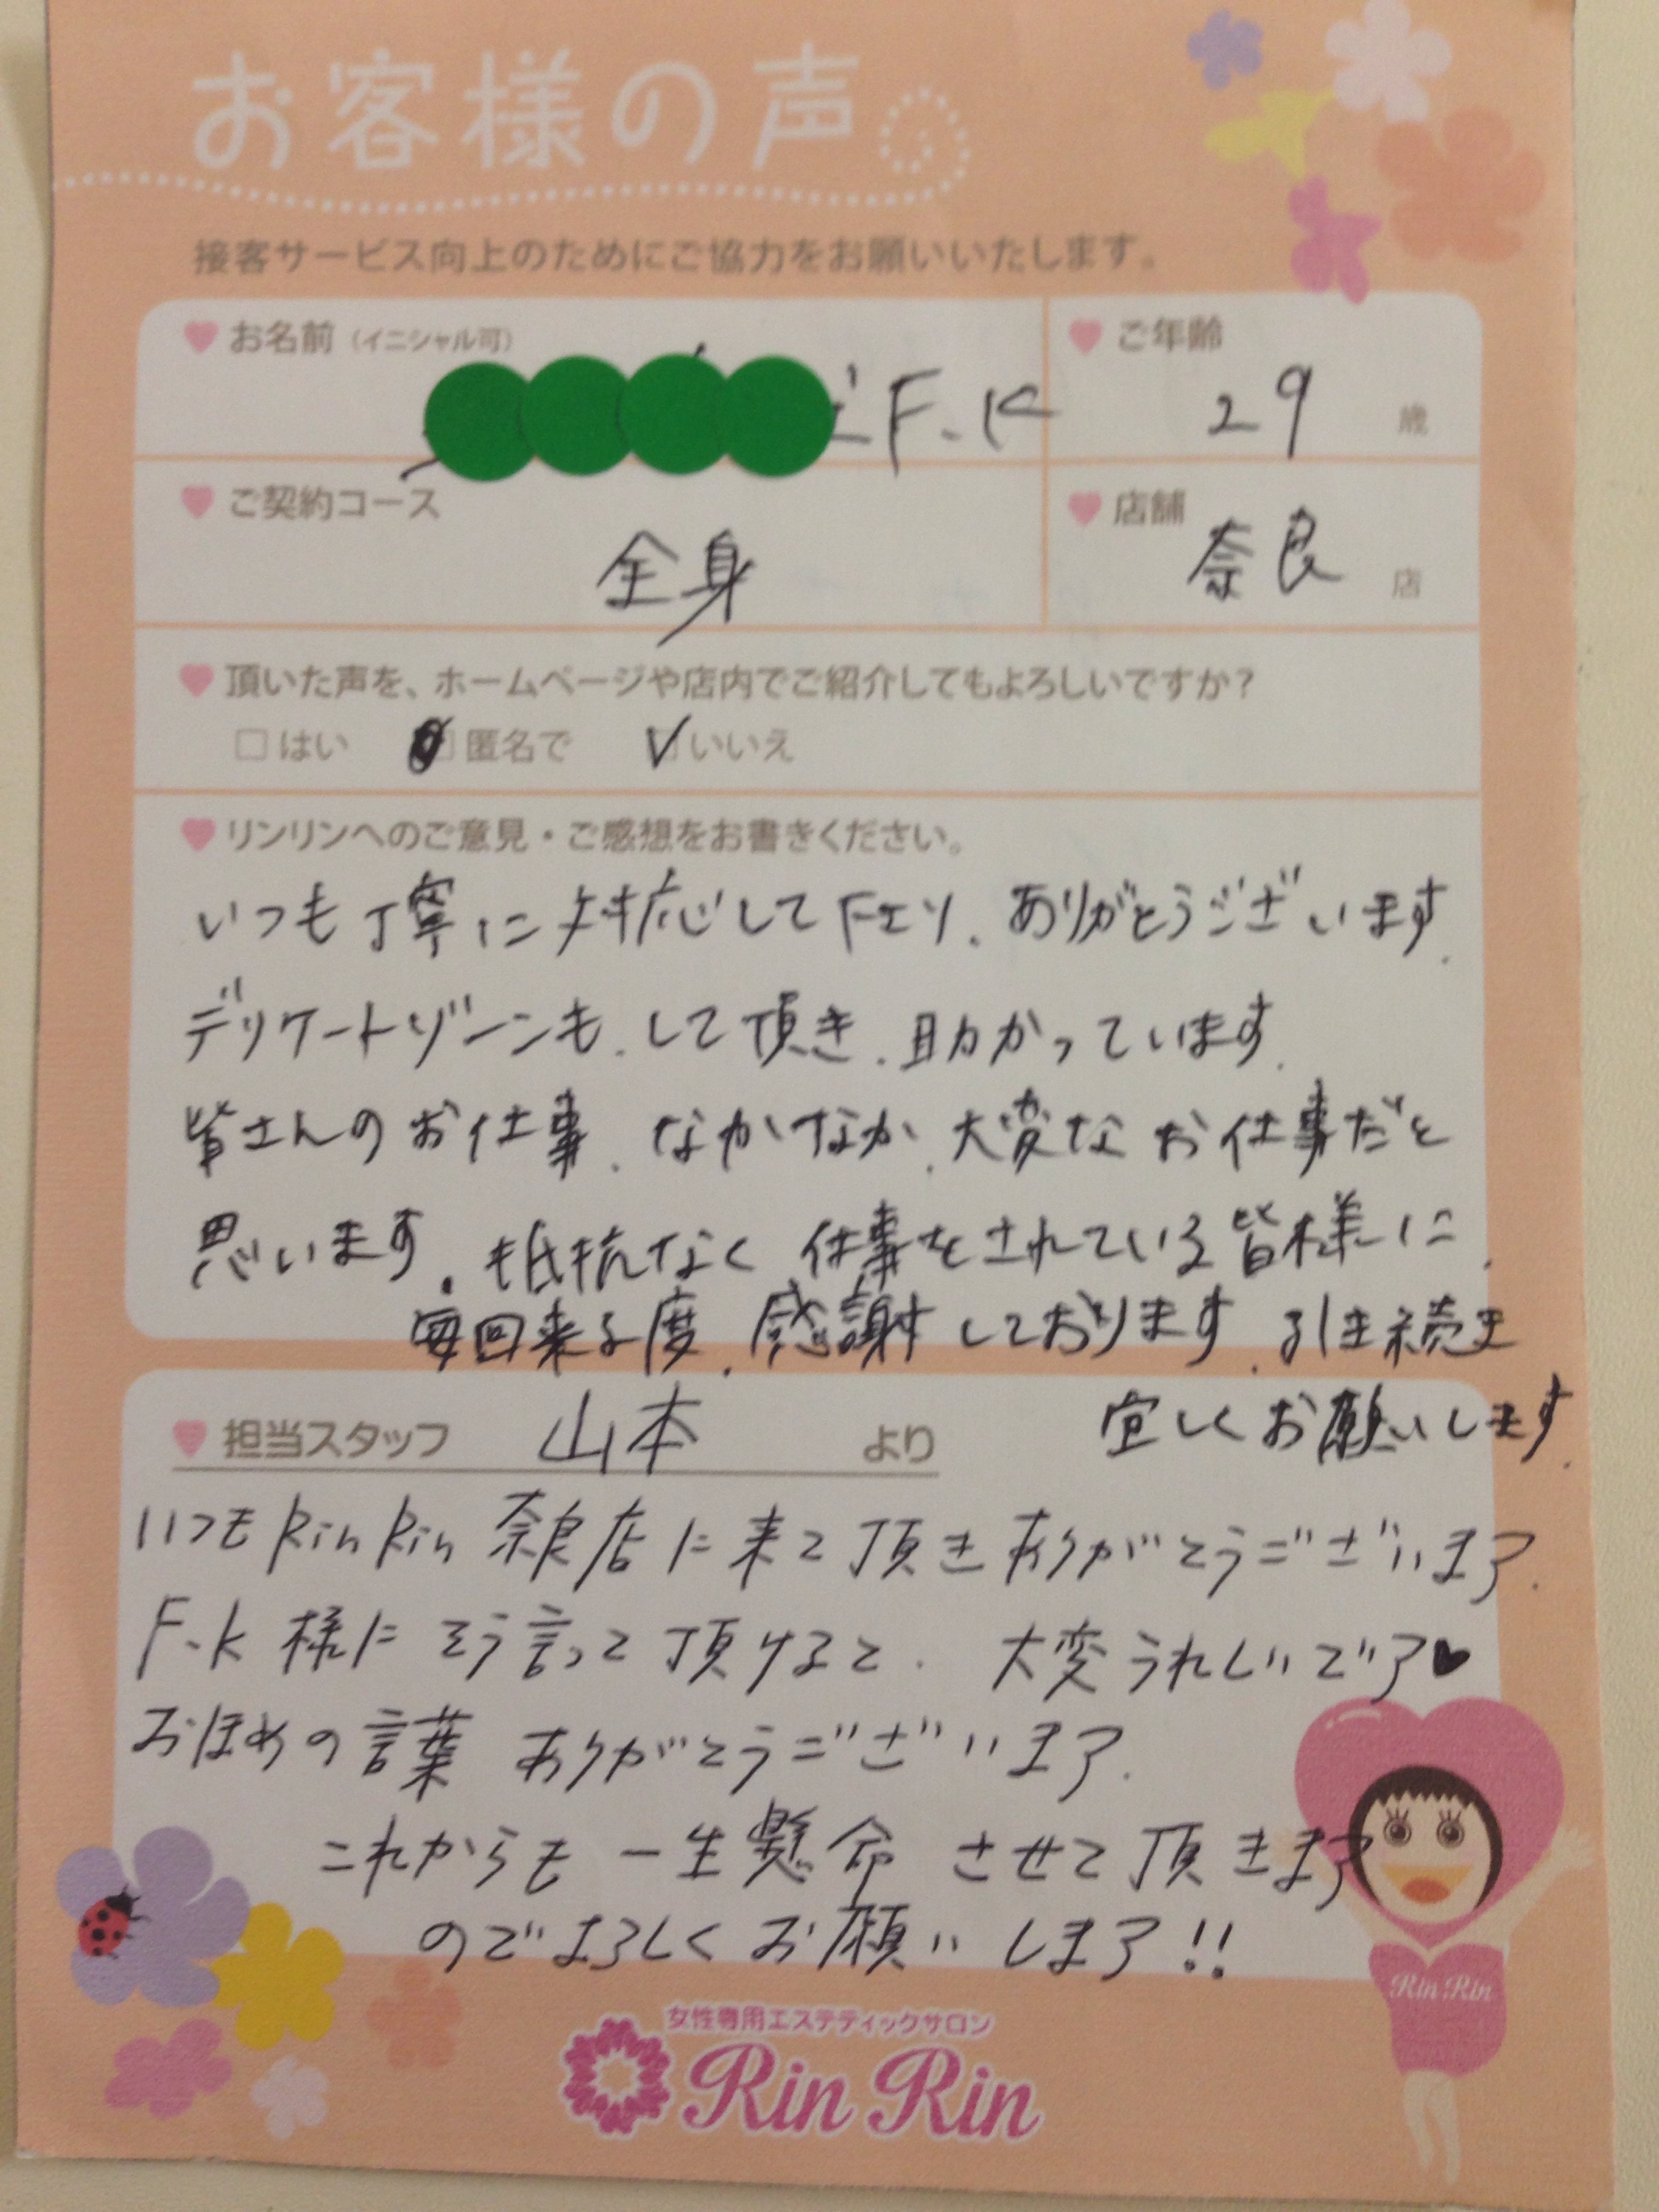 お客様の声
接客サービス向上のためにご協力をお願いいたします。
お名前(イニシャル可)
F.K
ご年齢
29 歳
ご契約コース
全身
店舗
奈良 店
頂いた声を、ホームページや店内でご紹介してもよろしいですか?
はい 匿名で いいえ
リンリンへのご意見・ご感想をお書きください。
いつも丁寧に対応して下さり、ありがとうございます。
デリケートゾーンも、して頂き、助かっています。
皆さんのお仕事、なかなか、大変なお仕事だと
思います。抵抗なく仕事をされている皆様に、
毎回来る度、感謝しております。引き続き
宜しくお願いします。
担当スタッフ 山本 より
いつもRinRin奈良店に来て頂きありがとうございます。
F.K様にそう言って頂けると、大変うれしいです♥
おほめの言葉ありがとうございます。
これからも一生懸命させて頂きます
のでよろしくお願いします!!
Rin Rin
女性専用エステティックサロン
Rin Rin